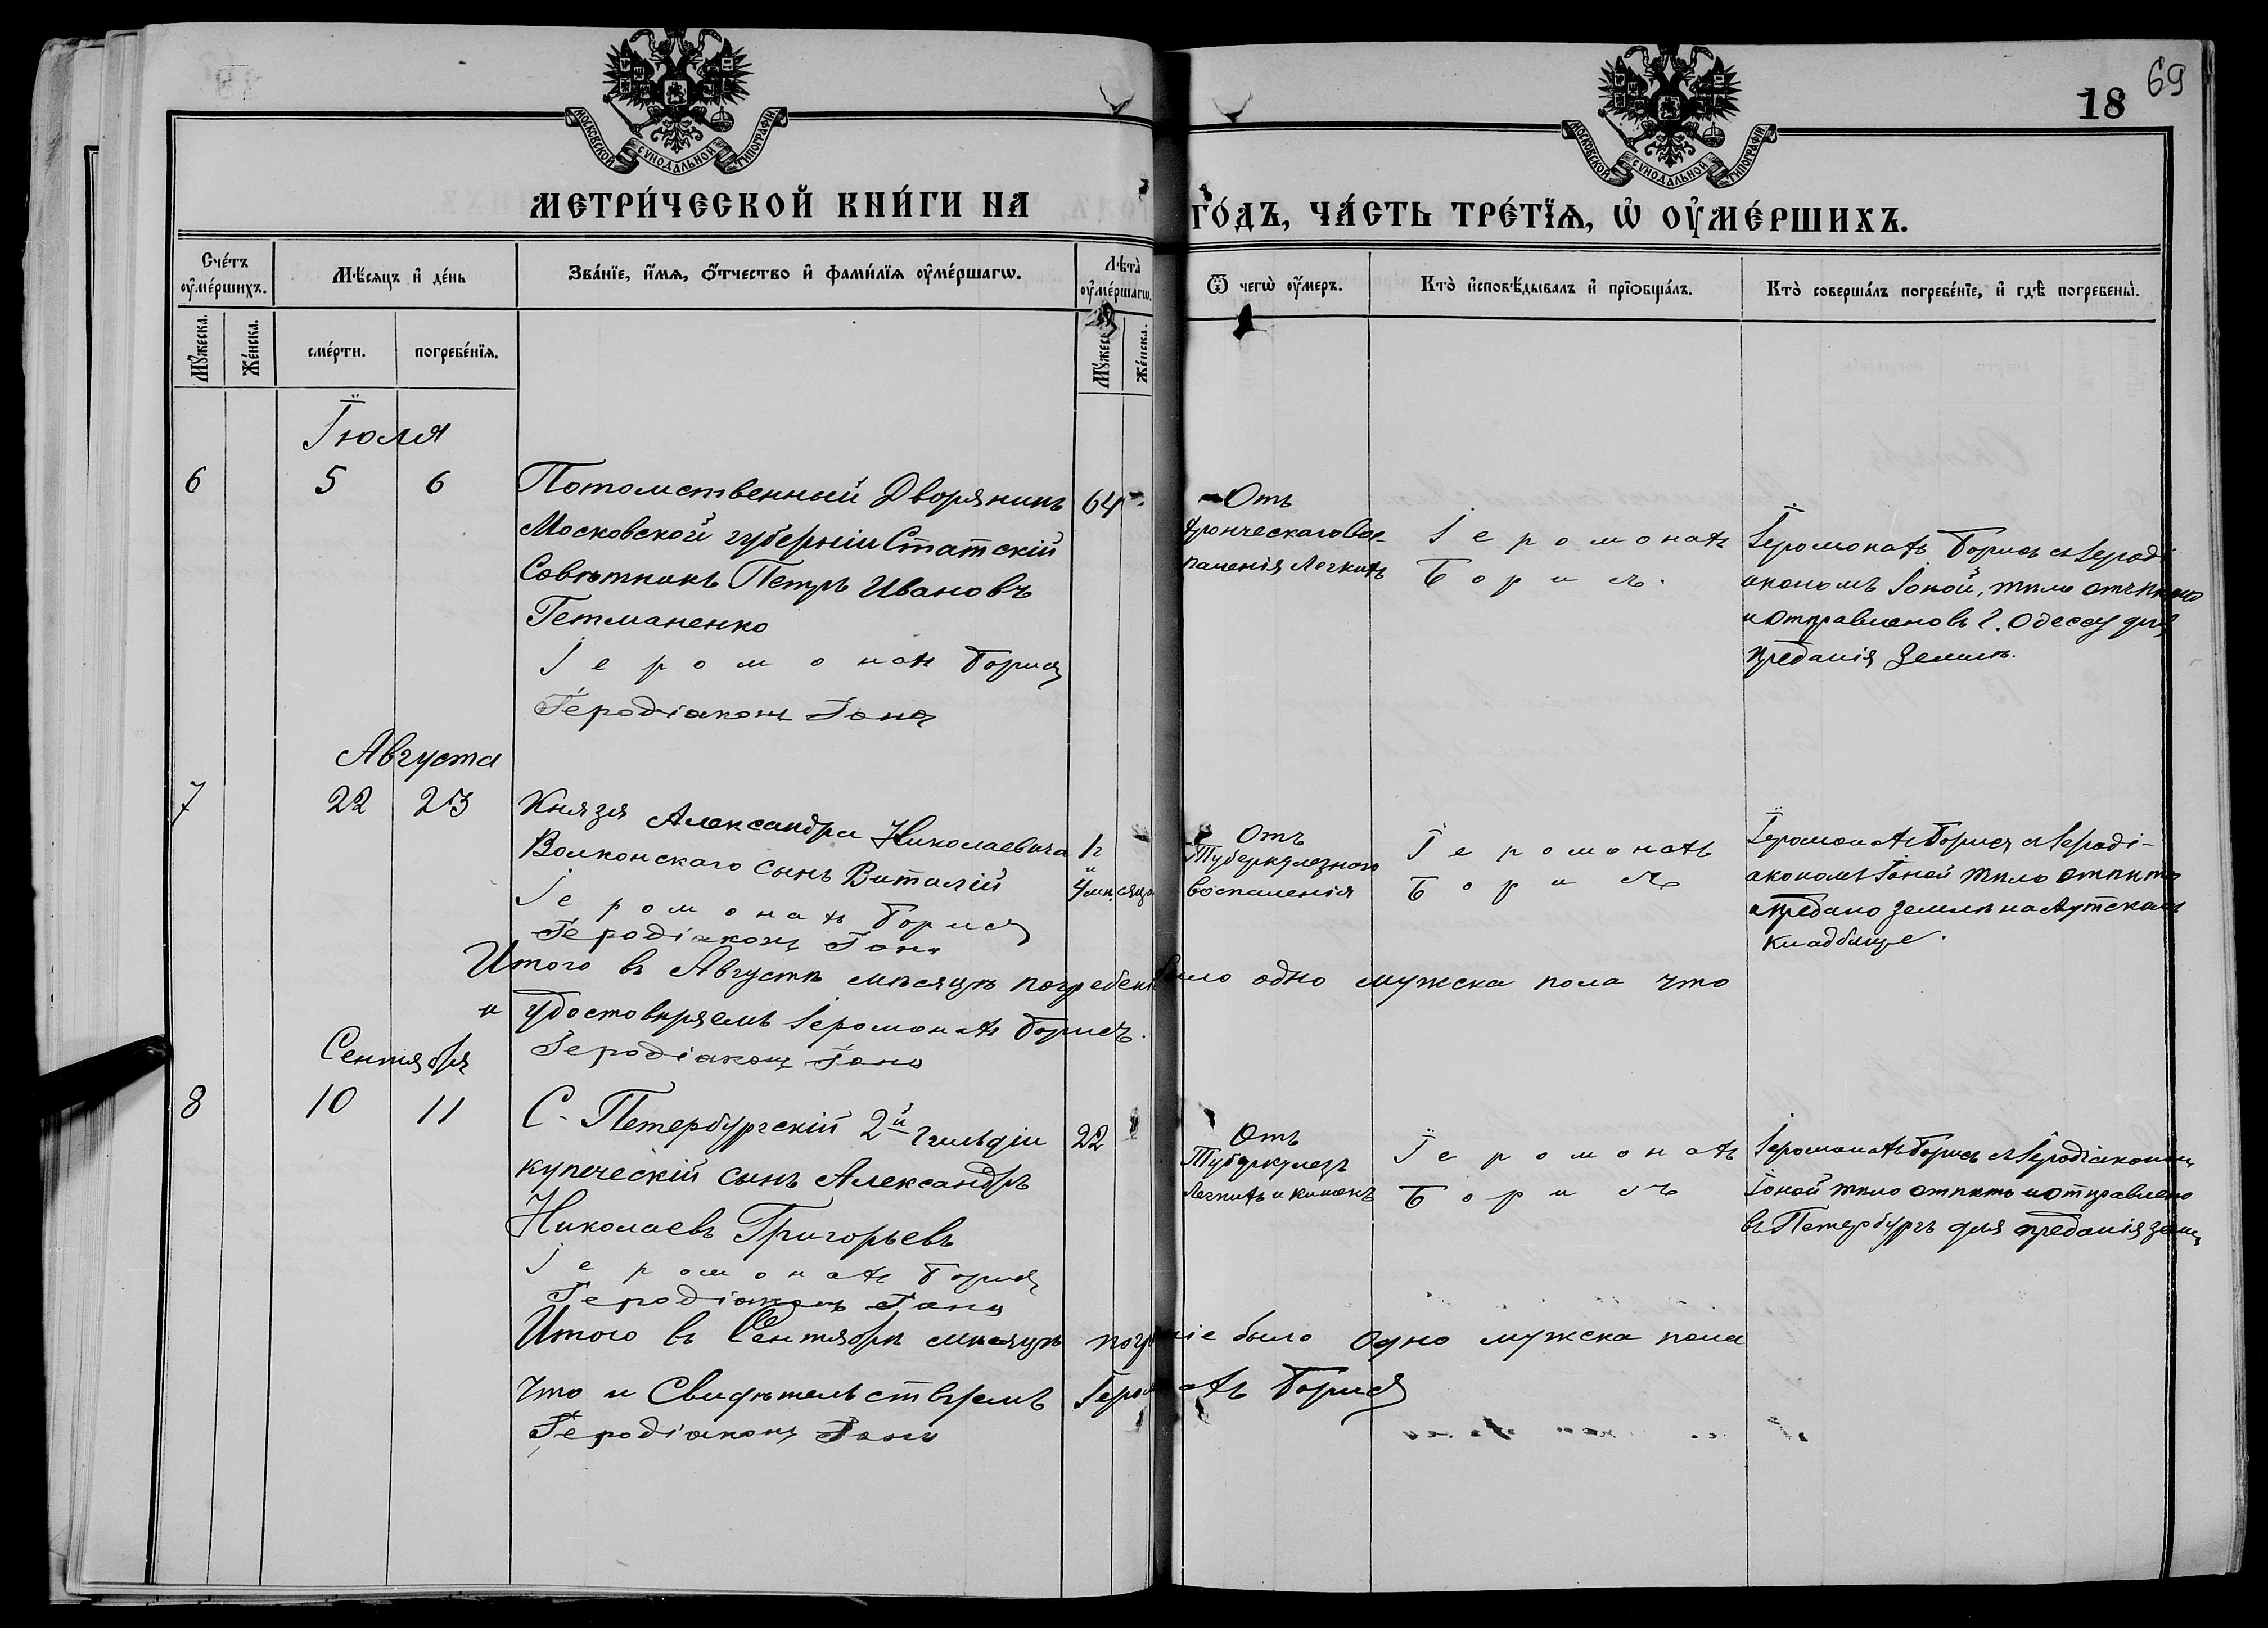 69
18
МОСКОВСКОЙ СУНОДАЛЬНОЙ ТИПОГРАФІИ
МОСКОВСКОЙ СУНОДАЛЬНОЙ ТИПОГРАФІИ
МЕТРИ́ЧЕСКОЙ КНИ́ГИ НА
ГО́ДЪ, ЧА́СТЬ ТРЕ́ТЇѦ, Ѡ҆ ОУ҆МЕ́РШИХЪ.
Сче́тъ оу҆ме́ршихъ.
Мѣ́сяцъ и҆ де́нь
Зва́нїе, и҆́мѧ, ѻ҆́тчество и҆ фами́лїѧ оу҆ме́ршагѡ.
Лѣта̀ оу҆ме́ршагѡ.
Ѿ чегѡ̀ оу҆́меръ.
Кто̀ и҆сповѣ́дывалъ и҆ прїѻбща́лъ.
Кто̀ соверша́лъ погребе́нїе, и҆ гдѣ̀ погребены̀.
Мꙋ́жеска.
Же́нска.
сме́рти.
погребе́нїѧ.
Мꙋ́жеска.
Же́нска.
Іюля
6 5 6 Потомственный Дворянинъ 64
Московской губерніи Статскій
Совѣтникъ Петръ Ивановъ
Гетманенко
Іеромонахъ Борисъ
Іеродіаконъ Іона
Отъ
хроническаго Вос-
паленія Легкихъ
Іеромонахъ
Борисъ.
Іеромонахъ Борисъ съ Іероді
акономъ Іоной, тѣло отпѣто
и отправлено въ г. Одессу для
преданія Землѣ.
Августа
7 22 23 Князя Александра Николаевича 1 г
Волконскаго сынъ Виталій и
4 мѣсяца
Іеромонахъ Борисъ
Іеродіаконъ Іона
Отъ
Туберкулезного
воспаленія
Іеромонахъ
Борисъ
Іеромонахъ Борисъ съ Іероді-
акономъ Іоной тѣло отпѣто
и предано землѣ на Аутскомъ
кладбище.
Итого въ Августѣ мѣсяцѣ погребені было одно мужска пола что
и удостовѣряемъ Іеромонахъ Борисъ.
Іеродіаконъ Іона
Сентября
8 10 11 С-Петербургскій 2й гильдіи 22
купеческій сынъ Александръ
Николаевъ Григорьевъ
Іеромонахъ Борисъ
Іеродіаконъ Іона
Отъ
Туберкулезъ
Легкихъ и кишекъ
Іеромонахъ
Борисъ
Іеромонахъ Борисъ съ Іеродіакономъ
Іоной тѣло отпѣто и отправлено
въ Петербургъ для преданія земл
Итого въ Сентябрѣ мѣсяцѣ погр ніе было одно мужска пола
что и Свидѣтельствуемъ Іером ахъ Борисъ
Іеродіаконъ Іона